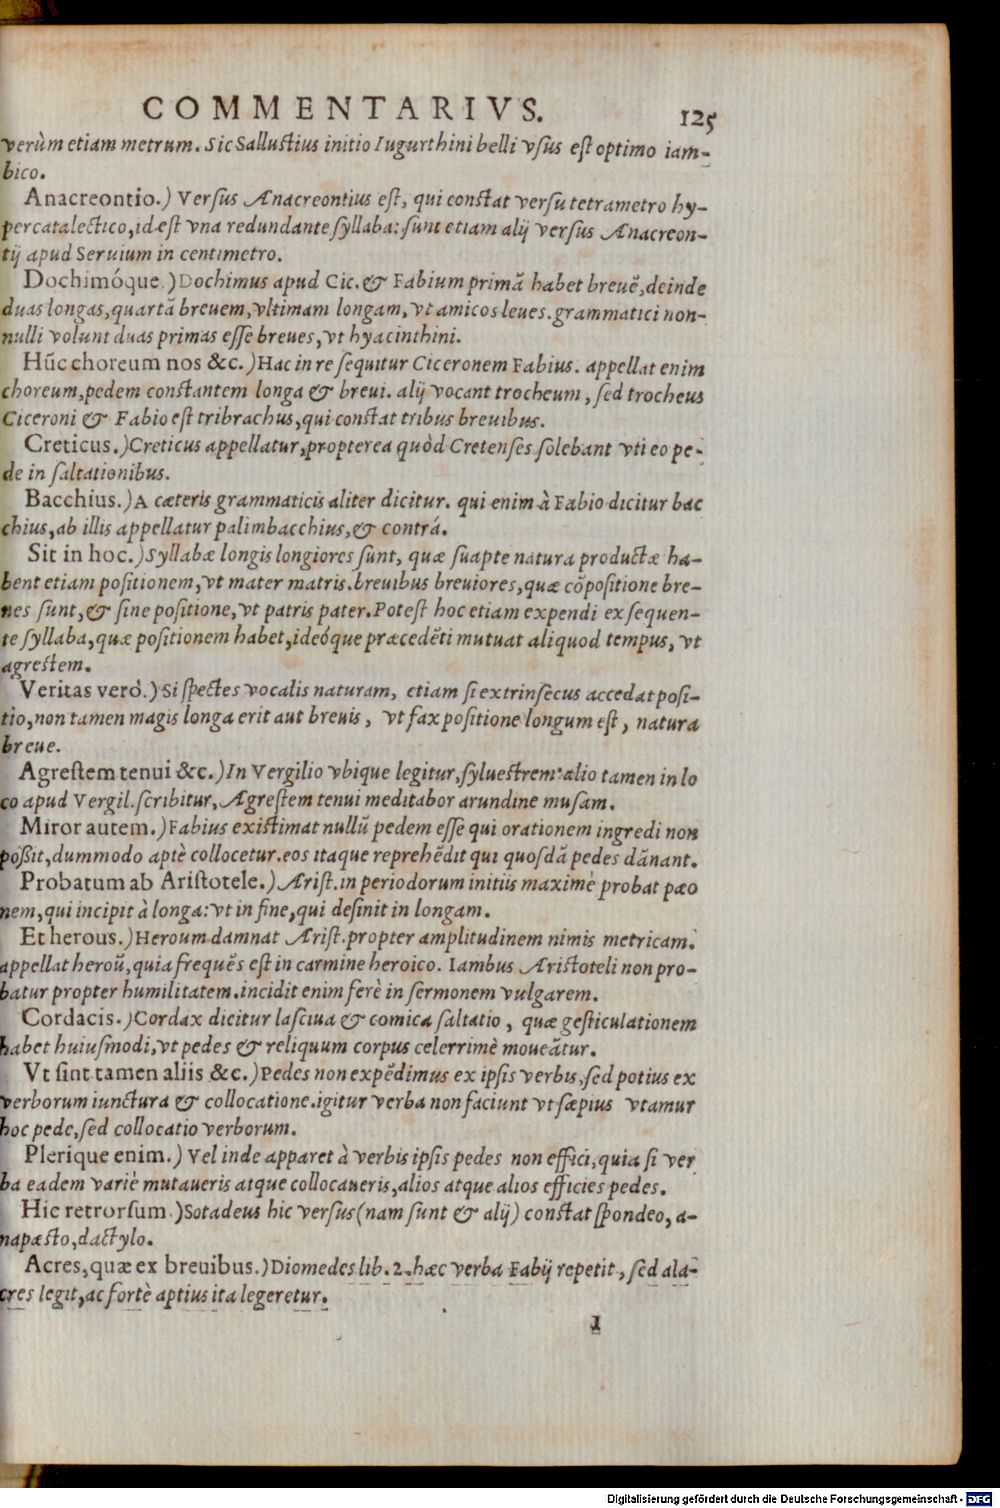 COMMENTARIVS. 125
verùm etiam metrum. Sic Sallustius initio Iugurthini belli vsus est optimo iam-
bico.
Anacreontio.) Versus Anacreontius est, qui constat versu tetrametro hy-
percatalectico, id est vna redundante syllaba: sunt etiam alij versus Anacreon-
tij apud Seruium in centimetro.
Dochimóque.) Dochimus apud Cic. & Fabium primã habet breuẽ, deinde
duas longas, quartã breuem, vltimam longam, vt amicos leues. grammatici non-
nulli volunt duas primas esse breues, vt hyacinthini.
Hũc choreum nos &c.) Hac in re sequitur Ciceronem Fabius. appellat enim
choreum, pedem constantem longa & breui. alij vocant trocheum, sed trocheus
Ciceroni & Fabio est tribrachus, qui constat tribus breuibus.
Creticus.) Creticus appellatur, propterea quòd Cretenses solebant vti eo pe-
de in saltationibus.
Bacchius.) A cæteris grammaticis aliter dicitur. qui enim à Fabio dicitur bac
chius, ab illis appellatur palimbacchius, & contrá.
Sit in hoc.) Syllabæ longis longiores sunt, quæ suapte natura productæ ha-
bent etiam positionem, vt mater matris. breuibus breuiores, quæ cõpositione bre-
nes sunt, & sine positione, vt patris pater. Potest hoc etiam expendi ex sequen-
te syllaba, quæ positionem habet, ideóque præcedẽti mutuat aliquod tempus, vt
agrestem.
Veritas verò.) Si spectes vocalis naturam, etiam si extrinsecus accedat posi-
tio, non tamen magis longa erit aut breuis, vt fax positione longum est, natura
breue.
Agrestem tenui &c.) In Vergilio vbique legitur, syluestrem: alio tamen in lo
co apud Vergil. scribitur, Agrestem tenui meditabor arundine musam.
Miror autem.) Fabius existimat nullũ pedem esse qui orationem ingredi non
poßit, dummodo aptè collocetur. eos itaque reprehẽdit qui quosdã pedes dãnant.
Probatum ab Aristotele.) Arist. in periodorum initiis maximè probat pæo
nem, qui incipit à longa: vt in fine, qui desinit in longam.
Et herous.) Heroum damnat Arist. propter amplitudinem nimis metricam.
appellat heroũ, quia frequẽs est in carmine heroico. Iambus Aristoteli non pro-
batur propter humilitatem. incidit enim ferè in sermonem vulgarem.
Cordacis.) Cordax dicitur lasciua & comica saltatio, quæ gesticulationem
habet huiusmodi, vt pedes & reliquum corpus celerrimè moueãtur.
Vt sint tamen aliis &c.) Pedes non expẽdimus ex ipsis verbis, sed potius ex
verborum iunctura & collocatione. igitur verba non faciunt vt sæpius vtamur
hoc pede, sed collocatio verborum.
Plerique enim.) Vel inde apparet à verbis ipsis pedes non effici, quia si ver
ba eadem variè mutaueris atque collocaueris, alios atque alios efficies pedes.
Hic retrorsum.) Sotadeus hic versus (nam sunt & alij) constat spondeo, a-
napæsto, dactylo.
Acres, quæ ex breuibus.) Diomedes lib. 2. hæc verba Fabij repetit, sed ala-
cres legit, ac fortè aptius ita legeretur.
I
Digitalisierung gefördert durch die Deutsche Forschungsgemeinschaft - DFG